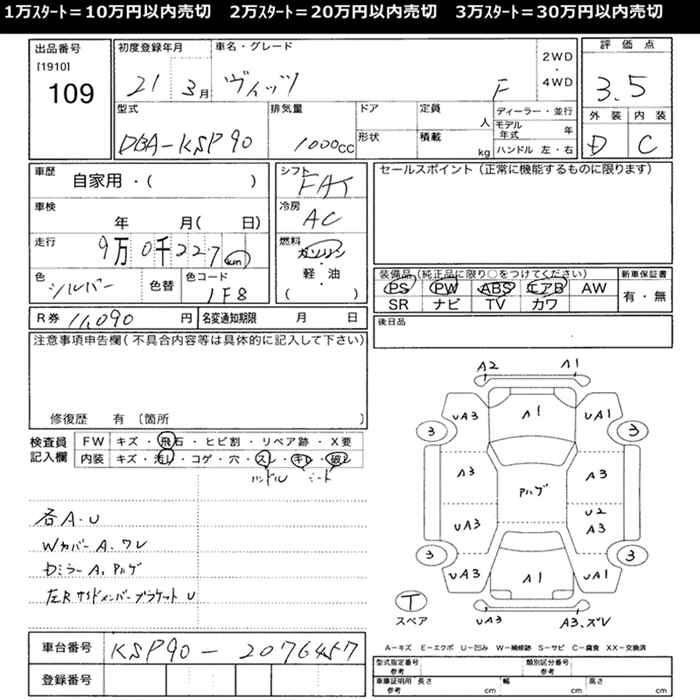 1万ｽﾀｰﾄ＝10万円以内売切　2万ｽﾀｰﾄ＝20万円以内売切　3万ｽﾀｰﾄ＝30万円以内売切
出品番号 [1910] 109
初度登録年月 21 3月
車名・グレード ヴィッツ F
2WD・4WD
評価点 3.5
外装 D 内装 C
型式 DBA-KSP90
排気量 1000cc
ドア
形状
定員 人
積載 kg
ディーラー・並行
モデル年式 年
ハンドル 左・右
車歴 自家用・( )
車検 年 月( 日)
走行 9万0千227km
色 シルバー 色替 色コード 1F8
シフト FAT
冷房 AC
燃料 ガソリン・軽・油 ( )
セールスポイント（正常に機能するものに限ります）
装備品（純正品に限り○をつけてください）
PS PW ABS エアB AW
SR ナビ TV カワ
新車保証書 有・無
後日品
R券 11,090円 名変通知期限 月 日
注意事項申告欄（不具合内容等は具体的に記入して下さい）
修復歴 有〔箇所
検査員記入欄
FW キズ・飛石・ヒビ割・リペア跡・X要
内装 キズ・汚れ・コゲ・穴・スレ・キレ・破レ
ハンドル シート
各A.U
Wカバー A.ワレ
Dミラー A.アルゲ
左Rサイドメンバーブラケット U
車台番号 KSP90-2076457
登録番号
A2 A1
UA3 A1 UA1
3 3
A3 アルゲ A3
U2
UA3 A3
3 3
UA3 A1 UA1
T
スペア
UA3 A3.ズレ
A－キズ E－エクボ U－凹み W－補修跡 S－サビ C－腐食 XX－交換済
型式指定番号 参考 類別区分番号 参考
車庫証明用 参考 長さ cm 幅 cm 高さ cm